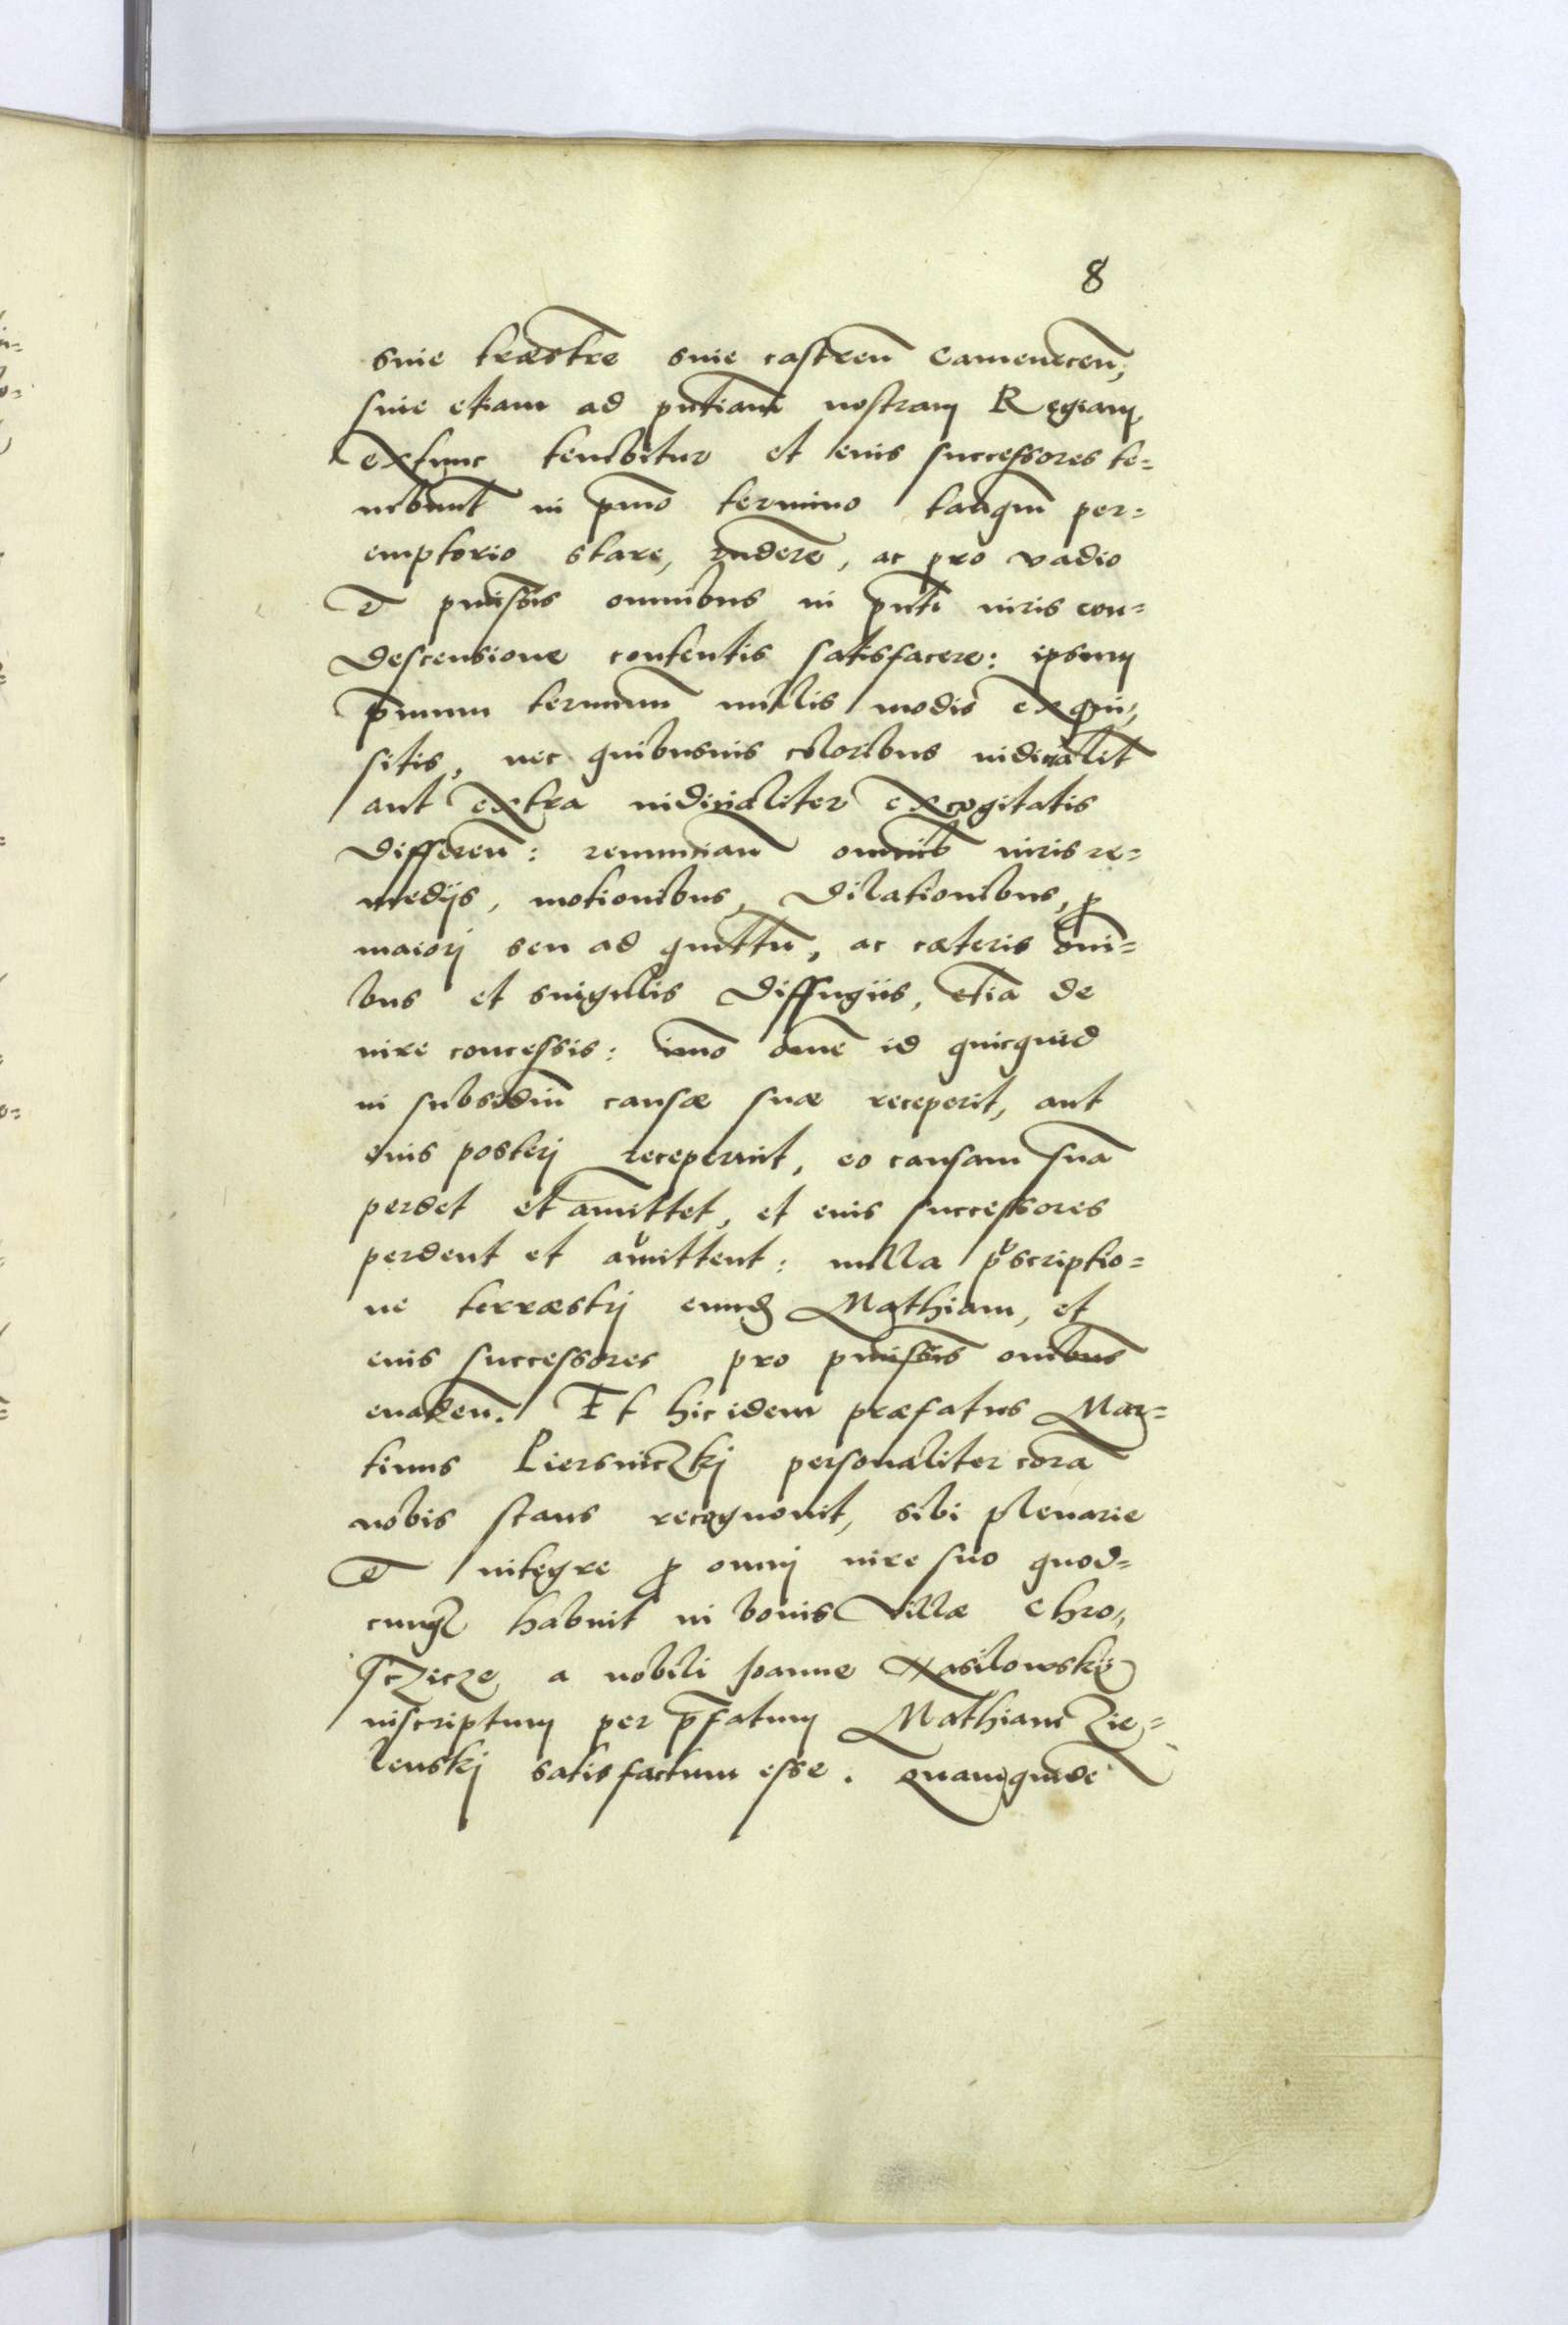 8
siue træstre siue castren̄ Camenecen̄,
siue etiam ad pn̄tiam nostram Regiam,
extunc tenebitur et eius successores te=
nebunt̄ in pm̄o termino tanqm̄ per=
emptorio stare, rn̄dere, ac pro vadio
et pmissis omnibus in pn̄ti iuris con=
descensione contentis satisfacere: ipsum
pmum terminū nullis modis exqui=
sitis, nec quibusuis coloribus iudicialit̄
aut extra iudicialiter excogitatis
differen̄: renuncian̄ omnib iuris re=
medijs, motionibus, dilationibus, p̄
maiorj seu ad quittū, ac cæteris om̄i=
bus et singulis diffugiis, etiā de
iure concessis: imō om̄e id quicquid
in subsidiū causæ suæ receperit, aut
eius posterj receperint, eo causam suā
perdet et amittet, et eius successores
perdent et amittent: nulla pscriptio=
ne terræstrj eund Mathiam, et
eius successores pro pmissis om̄ibus
euaden̄. Et hic idem præfatus Mar=
tinus Piersniczkj personaliter corā
nobis stans recognouit, sibi plenarie
et integre p̄ omnj iure suo quod=
cunqȝ habuit in bonis villæ Chro=
sczicze a nobili Joanne Wasilowskj
inscriptum per p̄fatum Mathiam Zie=
lenskj satisfactum esse. Quamquidē